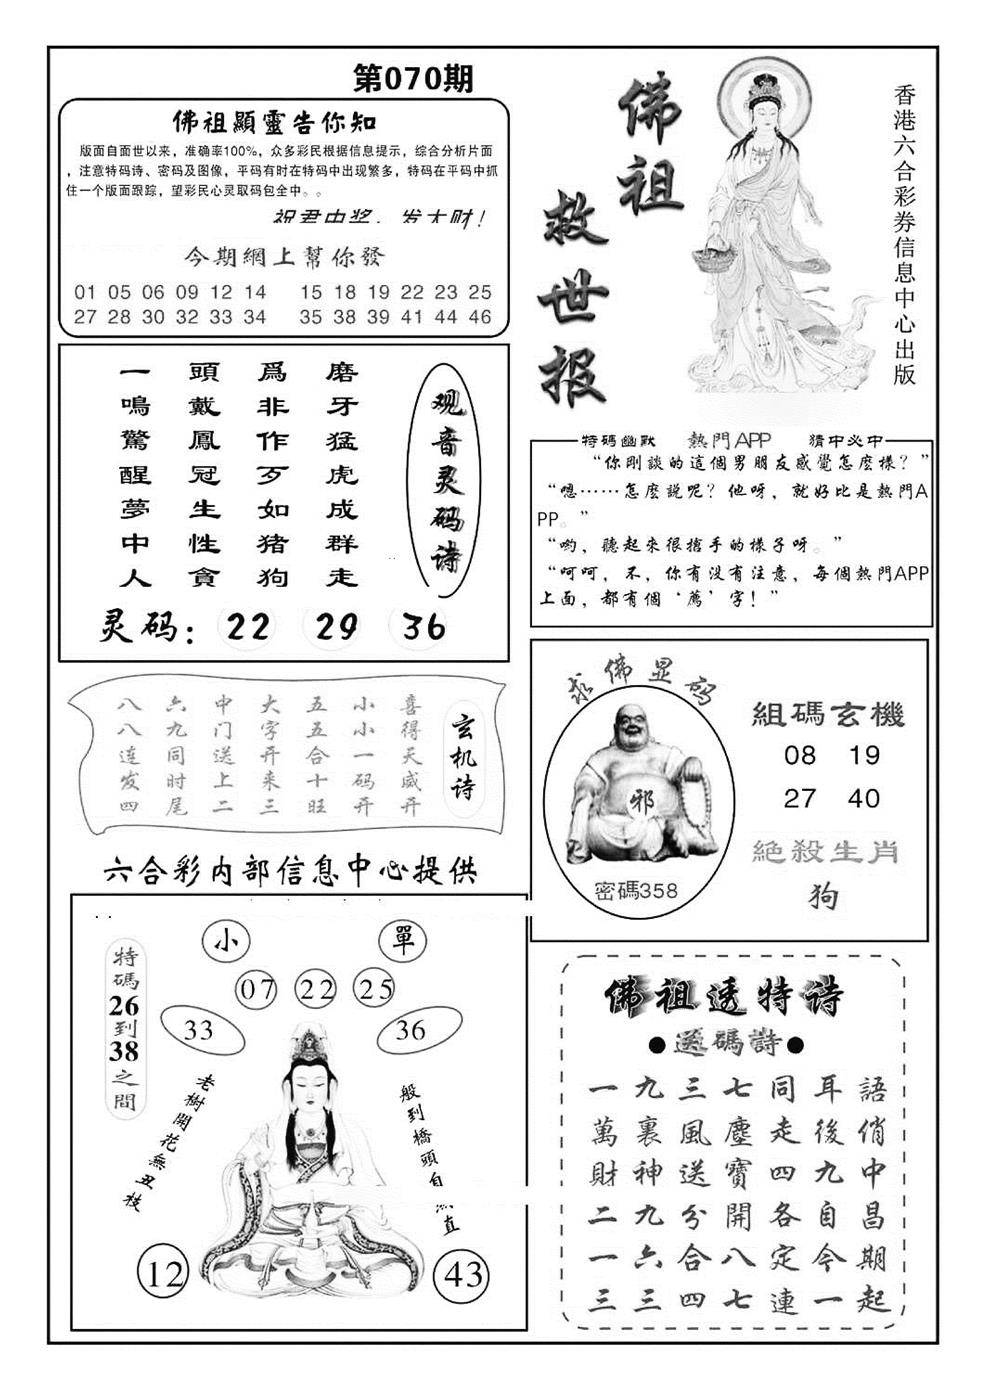 第070期
佛祖顯靈告你知
版面自面世以来，准确率100%，众多彩民根据信息提示，综合分析片面
，注意特码诗、密码及图像，平码有时在特码中出现繁多，特码在平码中抓
住一个版面跟踪，望彩民心灵取码包全中。。
祝君中奖，发大财！
今期網上幫你發
01 05 06 09 12 14 15 18 19 22 23 25
27 28 30 32 33 34 35 38 39 41 44 46
佛祖
救世报
香港六合彩券信息中心出版
观音灵码诗
磨牙猛虎成群走
爲非作歹如猪狗
頭戴鳳冠生性貪
一鳴驚醒夢中人
灵码：22 29 36
特碼幽默 熱門APP 猜中必中
“你剛談的這個男朋友感覺怎麽樣？”
“嗯……怎麽說呢？他呀，就好比是熱門A
PP。”
“哟，聽起來很搶手的樣子呀。”
“呵呵，不，你有没有注意，每個熱門APP
上面，都有個‘薦’字！”
玄机诗
喜得天威开
小小一码开
五五合十旺
大字开来三
中门送上二
六九同时尾
八八连发四
求佛显码
邪
密碼358
組碼玄機
08 19
27 40
絕殺生肖
狗
六合彩内部信息中心提供
小 單
07 22 25
33 36
特碼26到38之間
老樹開花無丑枝
般到橋頭自 直
12 43
佛祖透特诗
●送碼詩●
語俏中昌期起
耳後九自今一
同走四各定連
七塵寶開八七
三風送分合四
九裏神九六三
一萬財二一三